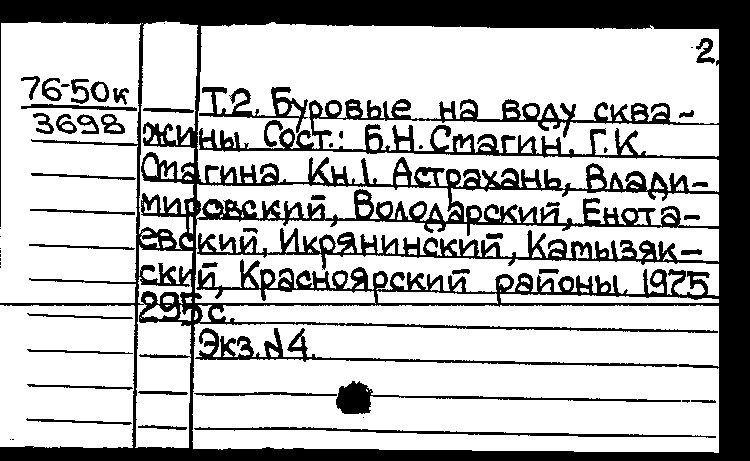 2.
76-50к
3698
Т.2. Буровые на воду сква-
жины. Сост.: Б.Н. Стагин, Г.К.
Стагина. Кн.1. Астрахань, Влади-
мировский, Володарский, Енота-
евский, Икрянинский, Камызяк-
ский, Красноярский районы. 1975
295 с.
Экз.N4.